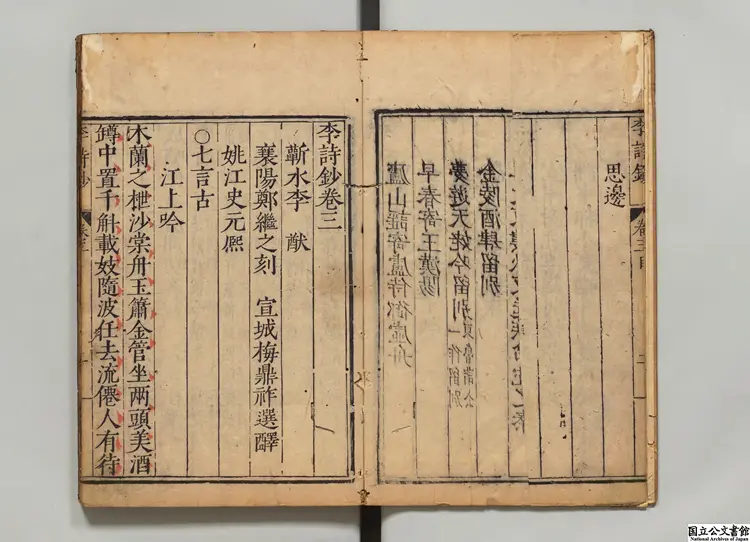 李詩鈔 卷三目 二
思邊
金陵酒肆留別
夢遊天姥吟留別 一作留別東魯諸公
早春寄王漢陽
廬山謠寄盧侍御虛舟
李詩鈔卷三
蘄水李 猷
襄陽鄭繼之刻 宣城梅鼎祚選釋
姚江史元熈
○七言古
江上吟
木蘭之枻沙棠舟玉簫金管坐兩頭美酒
罇中置千斛載妓隨波任去流僊人有待
李詩鈔 卷三 一
国立公文書館
National Archives of Japan